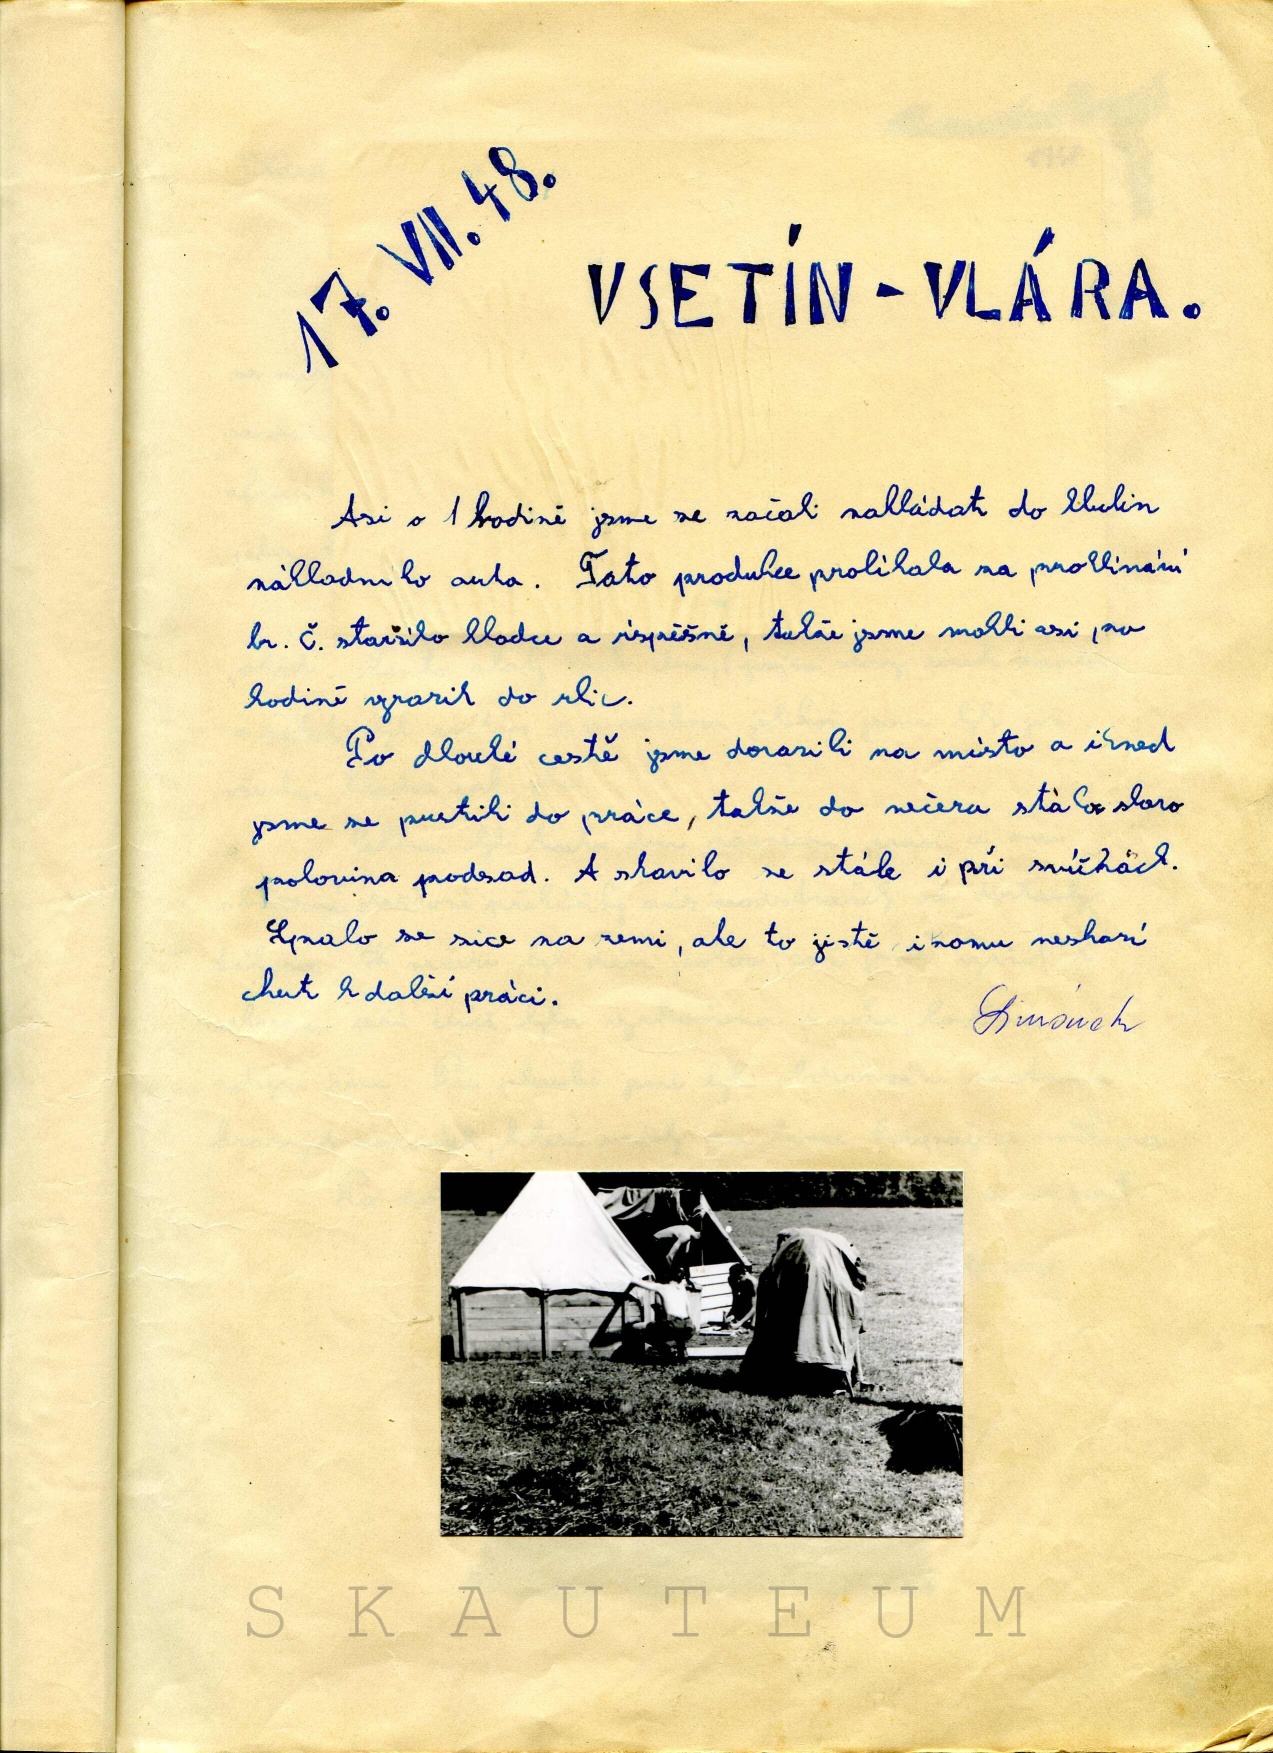 17. VII. 48.
VSETÍN - VLÁRA.
Asi o 1 hodině jsme se začali nakládat do hlubin
nákladního auta. Tato produkce probíhala za proklínání
br. Č. staršího hladce a úspěšně, takže jsme mohli asi po
hodině vyrazit do ulic.
Po dlouhé cestě jsme dorazili na místo a ihned
jsme se pustili do práce, takže do večera stála skoro
polovina podsad. A stavilo se stále i při svíčkách.
Spalo se sice na zemi, ale to jistě nikomu neskazí
chuť k další práci.
SKAUTEUM